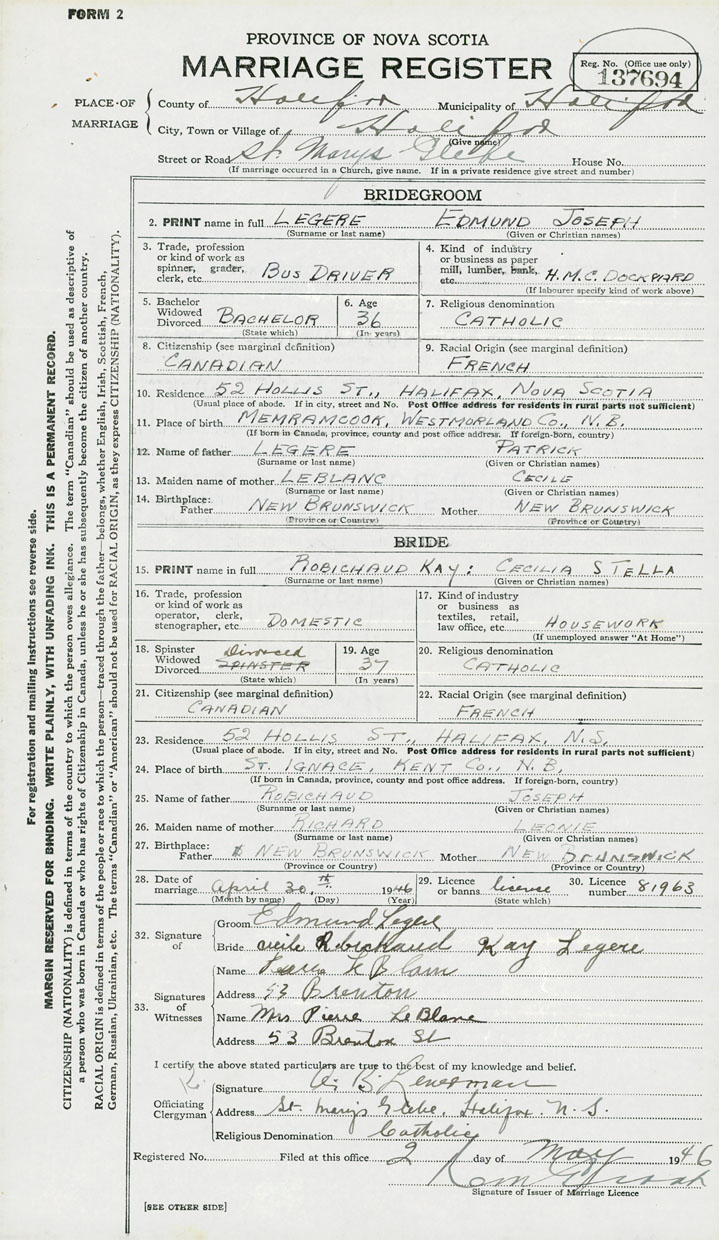 FORM 2
PROVINCE OF NOVA SCOTIA
MARRIAGE REGISTER
Reg. No. (Office use only)
137694
PLACE OF MARRIAGE
County of Halifax Municipality of Halifax
City, Town or Village of Halifax
(Give name)
Street or Road St. Marys Glebe House No.
(If marriage occurred in a Church, give name. If in a private residence give street and number)
BRIDEGROOM
2. PRINT name in full LEGERE EDMUND JOSEPH
(Surname or last name) (Given or Christian names)
3. Trade, profession or kind of work as spinner, grader, clerk, etc. BUS DRIVER
4. Kind of industry or business as paper mill, lumber, bank, etc. H.M.C. DOCKYARD
(If labourer specify kind of work above)
5. Bachelor Widowed Divorced BACHELOR
(State which)
6. Age 36
(In years)
7. Religious denomination
CATHOLIC
8. Citizenship (see marginal definition)
CANADIAN
9. Racial Origin (see marginal definition)
FRENCH
10. Residence 52 HOLLIS ST., HALIFAX, NOVA SCOTIA
(Usual place of abode. If in city, street and No. Post Office address for residents in rural parts not sufficient)
11. Place of birth MEMRAMCOOK, WESTMORLAND CO., N.B.
(If born in Canada, province, county and post office address. If foreign-Born, country)
12. Name of father LEGERE PATRICK
(Surname or last name) (Given or Christian names)
13. Maiden name of mother LEBLANC CECILE
(Surname or last name) (Given or Christian names)
14. Birthplace: Father NEW BRUNSWICK Mother NEW BRUNSWICK
(Province or Country) (Province or Country)
BRIDE
15. PRINT name in full ROBICHAUD KAY: CECILIA STELLA
(Surname or last name) (Given or Christian names)
16. Trade, profession or kind of work as operator, clerk, stenographer, etc. DOMESTIC
17. Kind of industry or business as textiles, retail, law office, etc. HOUSEWORK
(If unemployed answer "At Home")
18. Spinster Widowed Divorced Divorced SPINSTER
(State which)
19. Age 37
(In years)
20. Religious denomination
CATHOLIC
21. Citizenship (see marginal definition)
CANADIAN
22. Racial Origin (see marginal definition)
FRENCH
23. Residence 52 HOLLIS ST., HALIFAX, N.S.
(Usual place of abode. If in city, street and No. Post Office address for residents in rural parts not sufficient)
24. Place of birth ST. IGNACE, KENT CO., N.B.
(If born in Canada, province, county and post office address. If foreign-born, country)
25. Name of father ROBICHAUD JOSEPH
(Surname or last name) (Given or Christian names)
26. Maiden name of mother RICHARD LEONIE
(Surname or last name) (Given or Christian names)
27. Birthplace: Father NEW BRUNSWICK Mother NEW BRUNSWICK
(Province or Country) (Province or Country)
28. Date of marriage April 30th 1946
(Month by name) (Day) (Year)
29. Licence or banns license
(State which)
30. Licence number 81963
32. Signature of
Groom Edmund Legere
Bride Robichaud Kay Legere
33. Signatures of Witnesses
Name LeBlanc
Address 53 Brenton
Name Mrs Pierre LeBlanc
Address 53 Brenton St
I certify the above stated particulars are true to the best of my knowledge and belief.
Officiating Clergyman
Signature
Address St. Mary's Glebe, Halifax. N. S.
Religious Denomination Catholic
Registered No. Filed at this office 2 day of May 1946
Signature of Issuer of Marriage Licence
[SEE OTHER SIDE]
For registration and mailing instructions see reverse side.
MARGIN RESERVED FOR BINDING. WRITE PLAINLY, WITH UNFADING INK. THIS IS A PERMANENT RECORD.
CITIZENSHIP (NATIONALITY) is defined in terms of the country to which the person owes allegiance. The term "Canadian" should be used as descriptive of
a person who was born in Canada or who has rights of Citizenship in Canada, unless he or she has subsequently become the citizen of another country.
RACIAL ORIGIN is defined in terms of the people or race to which the person—traced through the father—belongs, whether English, Irish, Scottish, French,
German, Russian, Ukrainian, etc. The terms "Canadian" or "American" should not be used for RACIAL ORIGIN, as they express CITIZENSHIP (NATIONALITY).